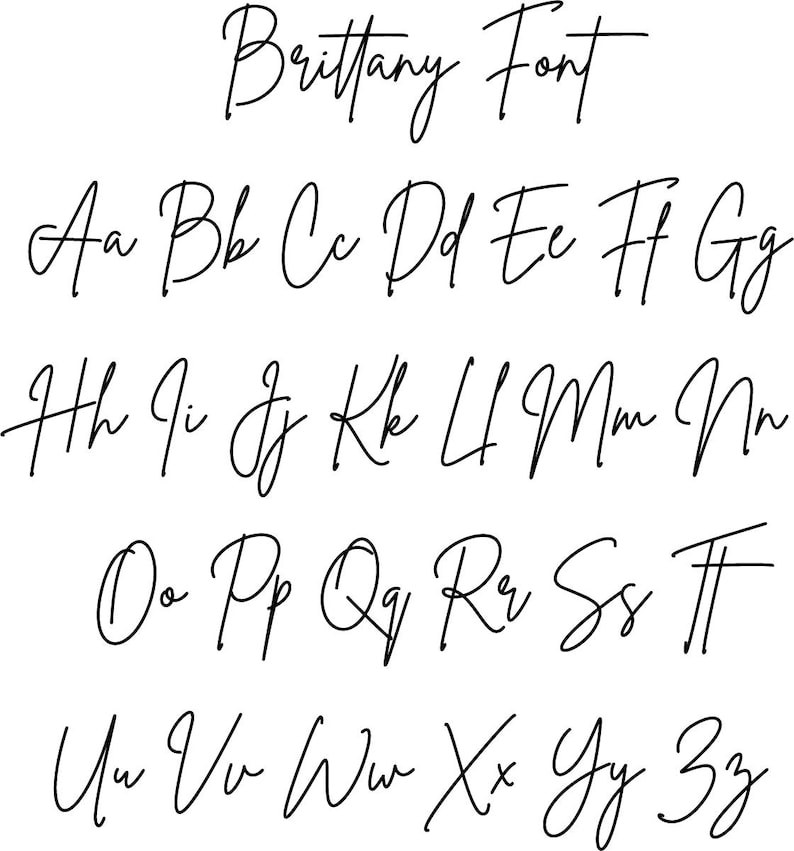 Brittany Font
Aa Bb Cc Dd Ee Ff Gg
Hh Ii Jj Kk Ll Mm Nn
Oo Pp Qq Rr Ss Tt
Uu Vv Ww Xx Yy Zz